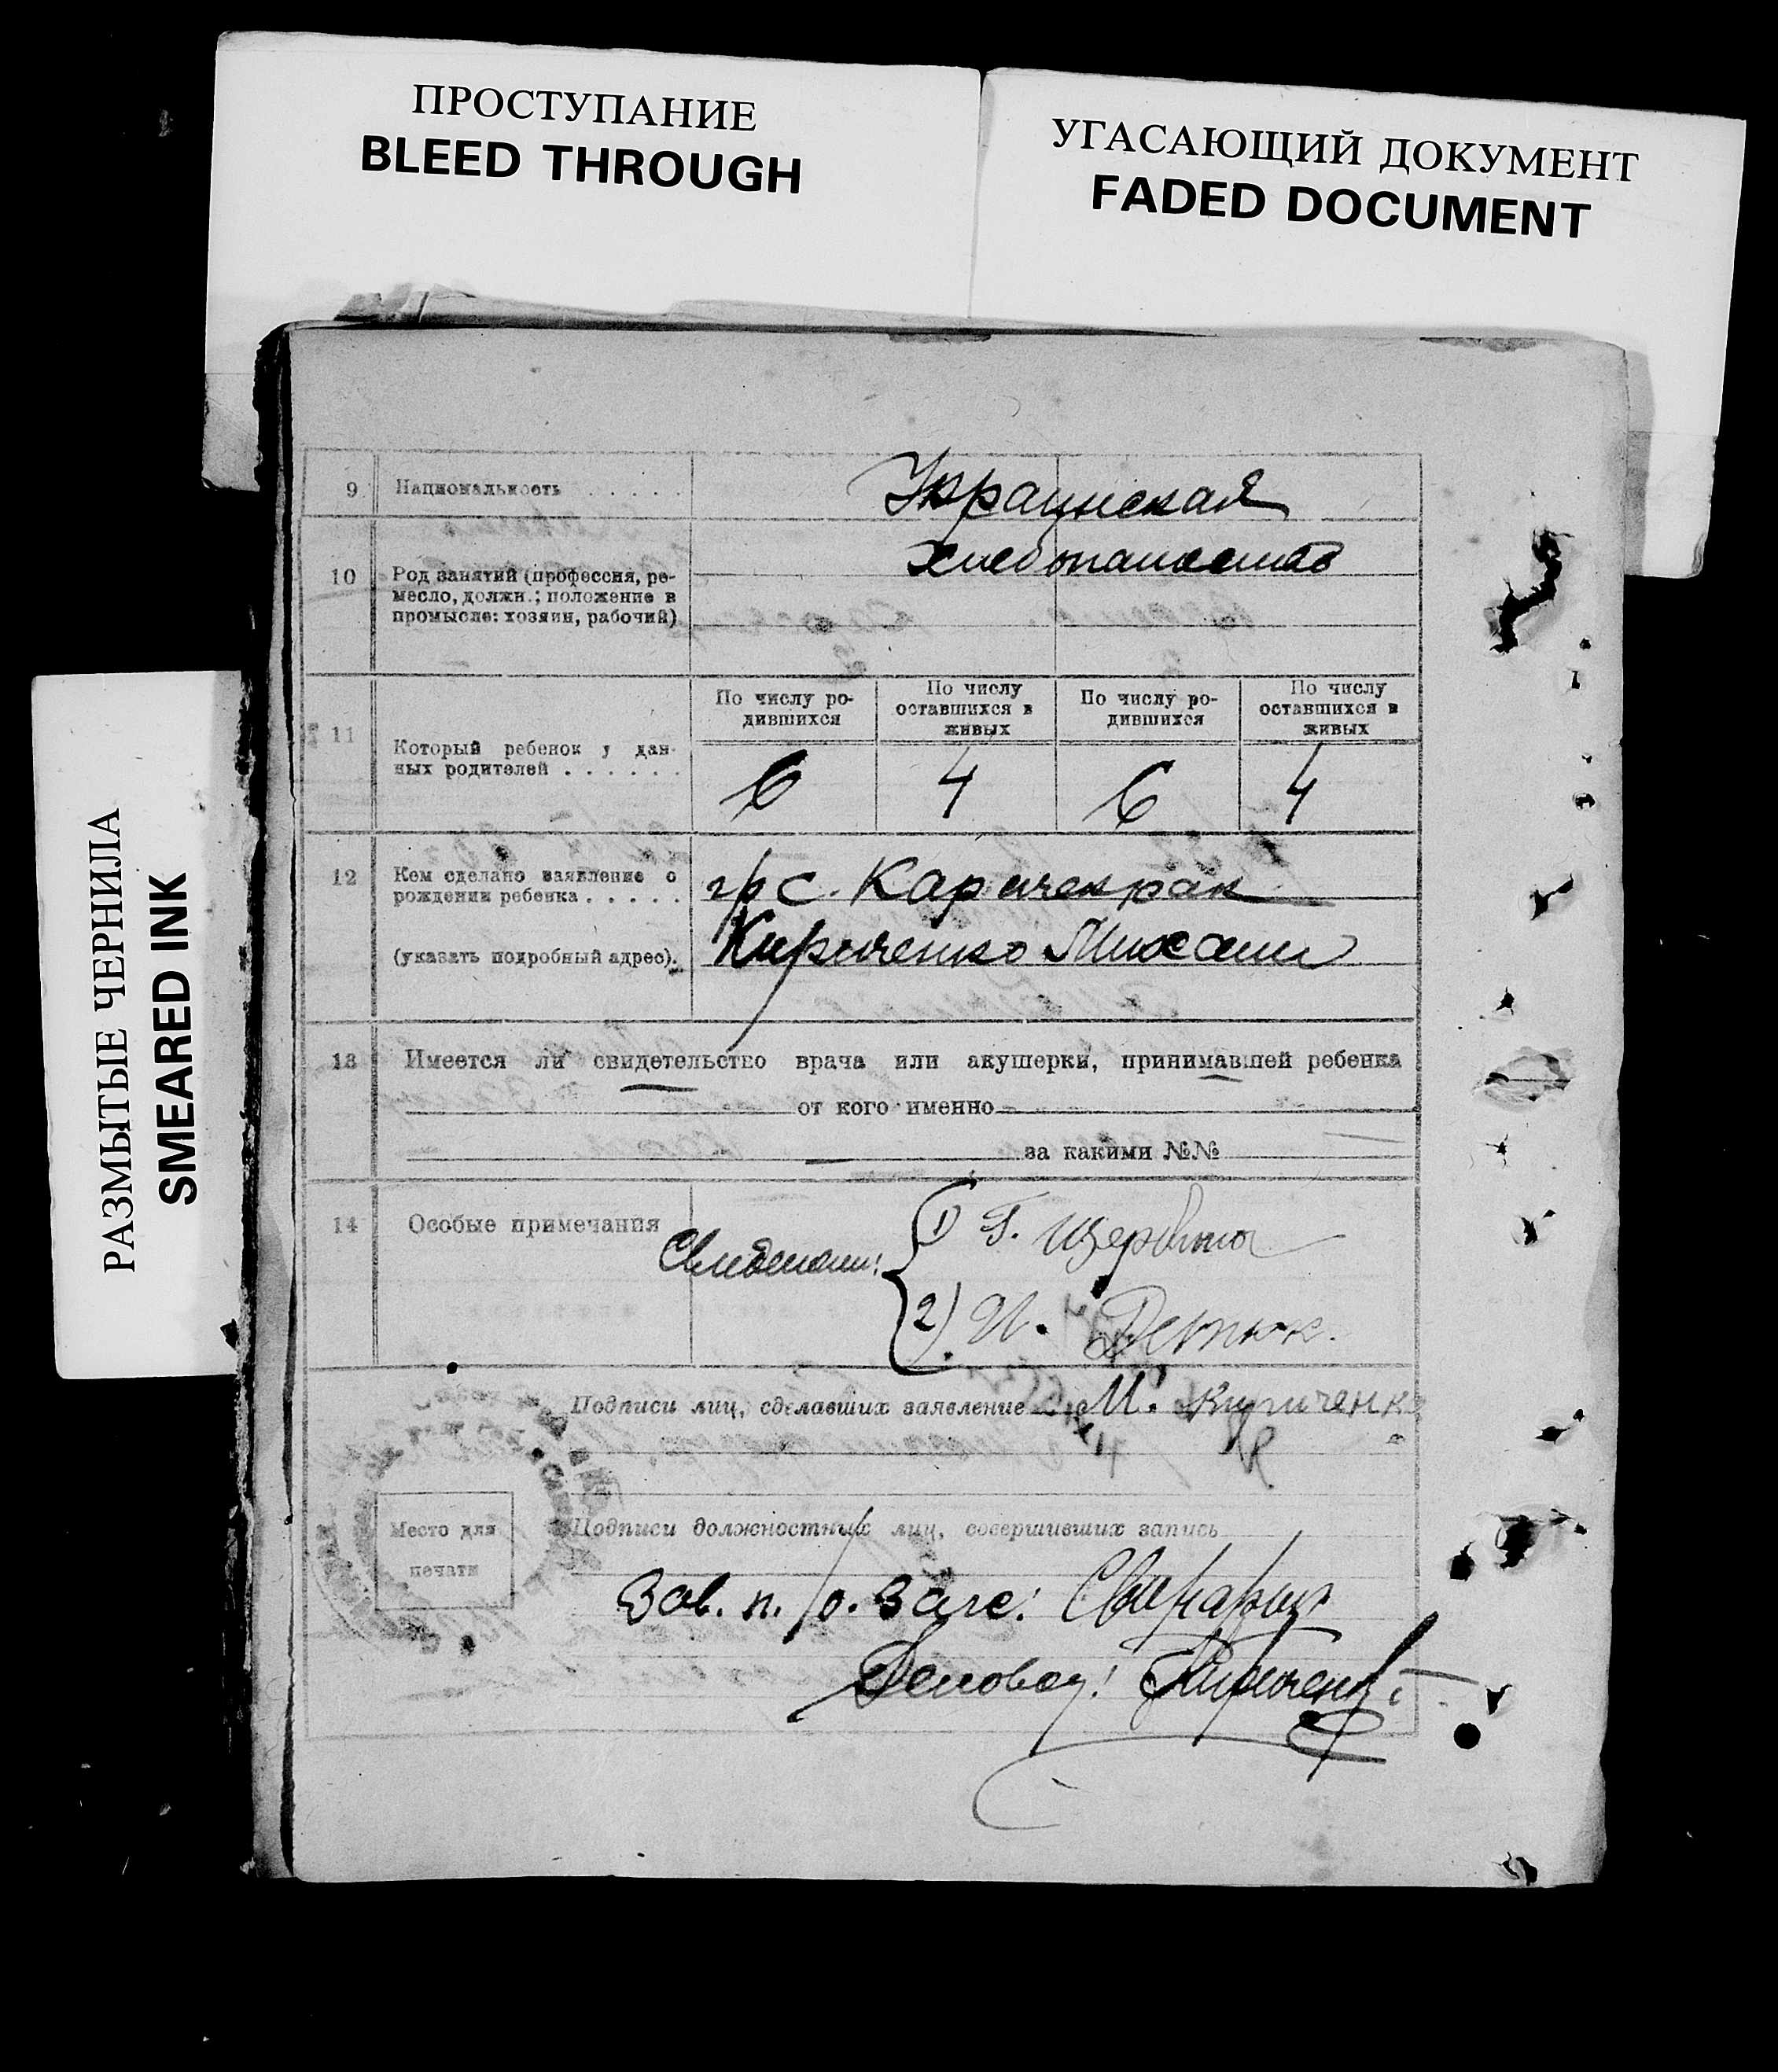 ПРОСТУПАНИЕ
BLEED THROUGH
УГАСАЮЩИЙ ДОКУМЕНТ
FADED DOCUMENT
РАЗМЫТЫЕ ЧЕРНИЛА
SMEARED INK
9 Национальность . . . . . Украинская
10 Род занятий (профессия, ре-
месло, должн.; положение в
промысле: хозяин, рабочий)
Хлебопашество
11 Который ребенок у дан-
ных родителей . . . . . .
По числу ро-
дившихся
По числу
оставшихся в
живых
По числу ро-
дившихся
По числу
оставшихся в
живых
6 4 6 4
12 Кем сделано заявление о
рождении ребенка . . . . .
(указать подробный адрес).
гр с.
Кириченко Михаил
13 Имеется ли свидетельство врача или акушерки, принимавшей ребенка
от кого именно
за какими №№
14 Особые примечания
Свидетели:
1) Г. Щербина
2) И.
Подписи лиц, сделавших заявление М. Кириченко
Место для
печати
Подписи должностных лиц, совершивших запись
Зав. п./о. Загс:
Деловод: Кириченко